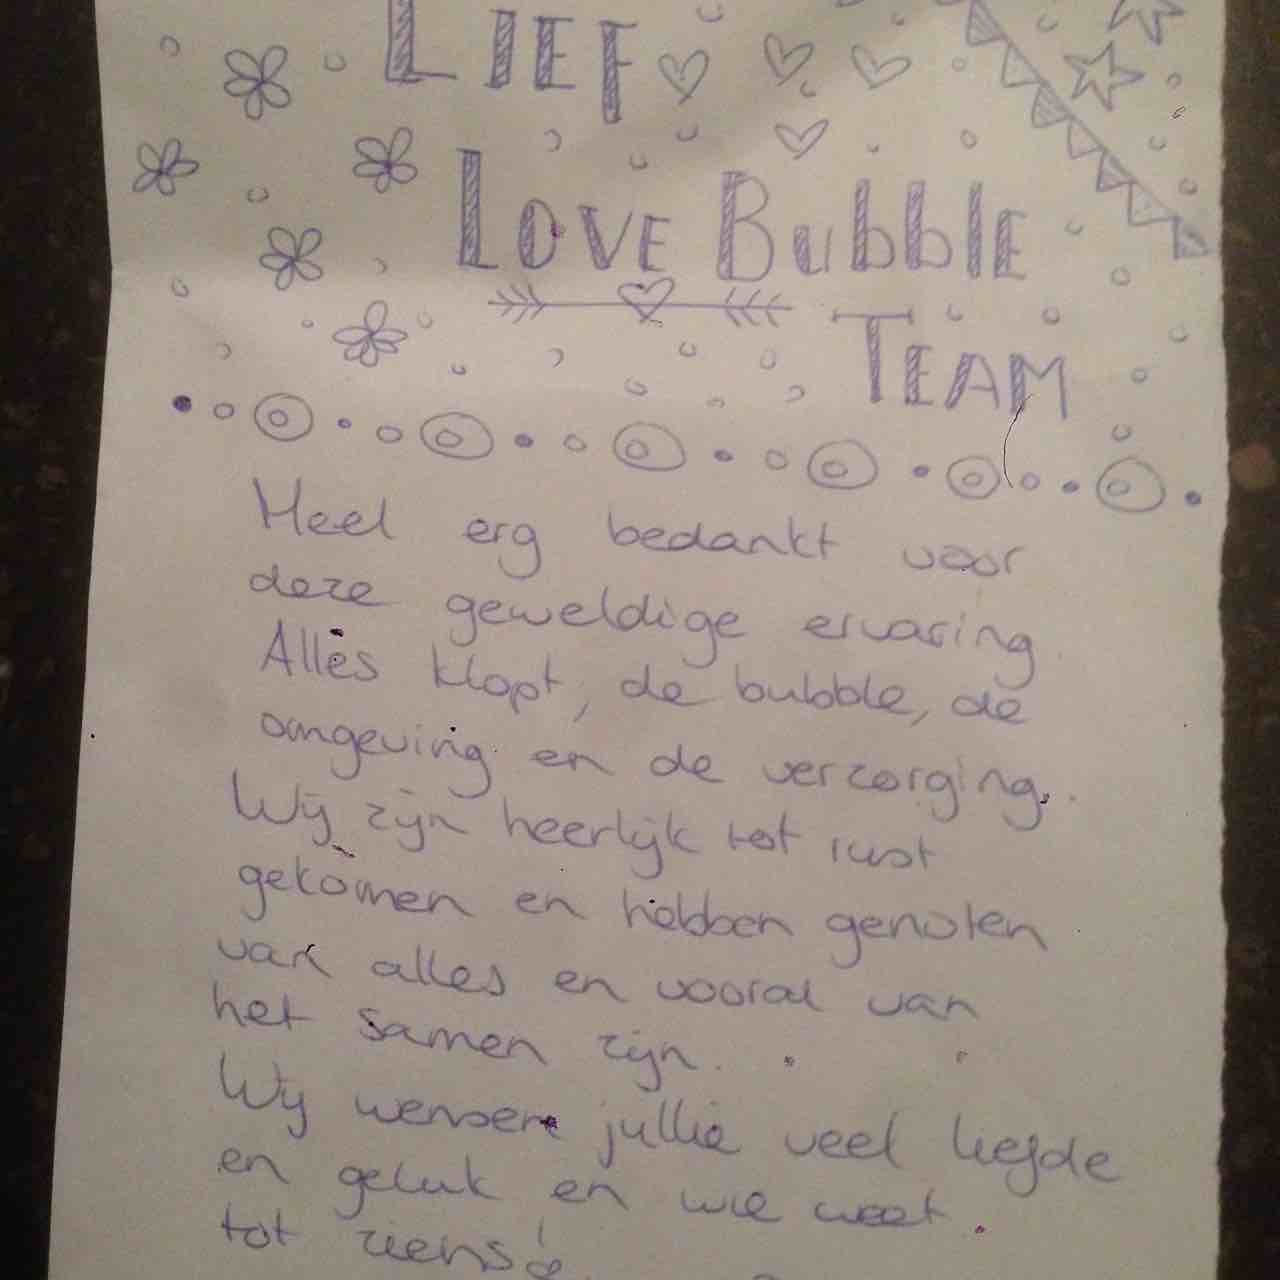 LIEF
LOVE BUbblE
TEAM
Heel erg bedankt voor
deze geweldige ervaring.
Alles klopt, de bubble, de
omgeving en de verzorging.
Wij zijn heerlijk tot rust
gekomen en hebben genoten
van alles en vooral van
het samen zijn.
Wij wensen jullie veel liefde
en geluk en wie weet
tot ziens!